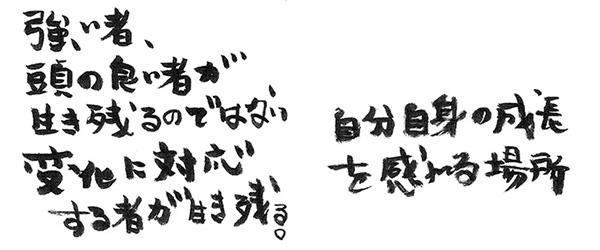 強い者、
頭の良い者が
生き残るのではない
変化に対応
する者が生き残る。
自分自身の成長
を感じれる場所